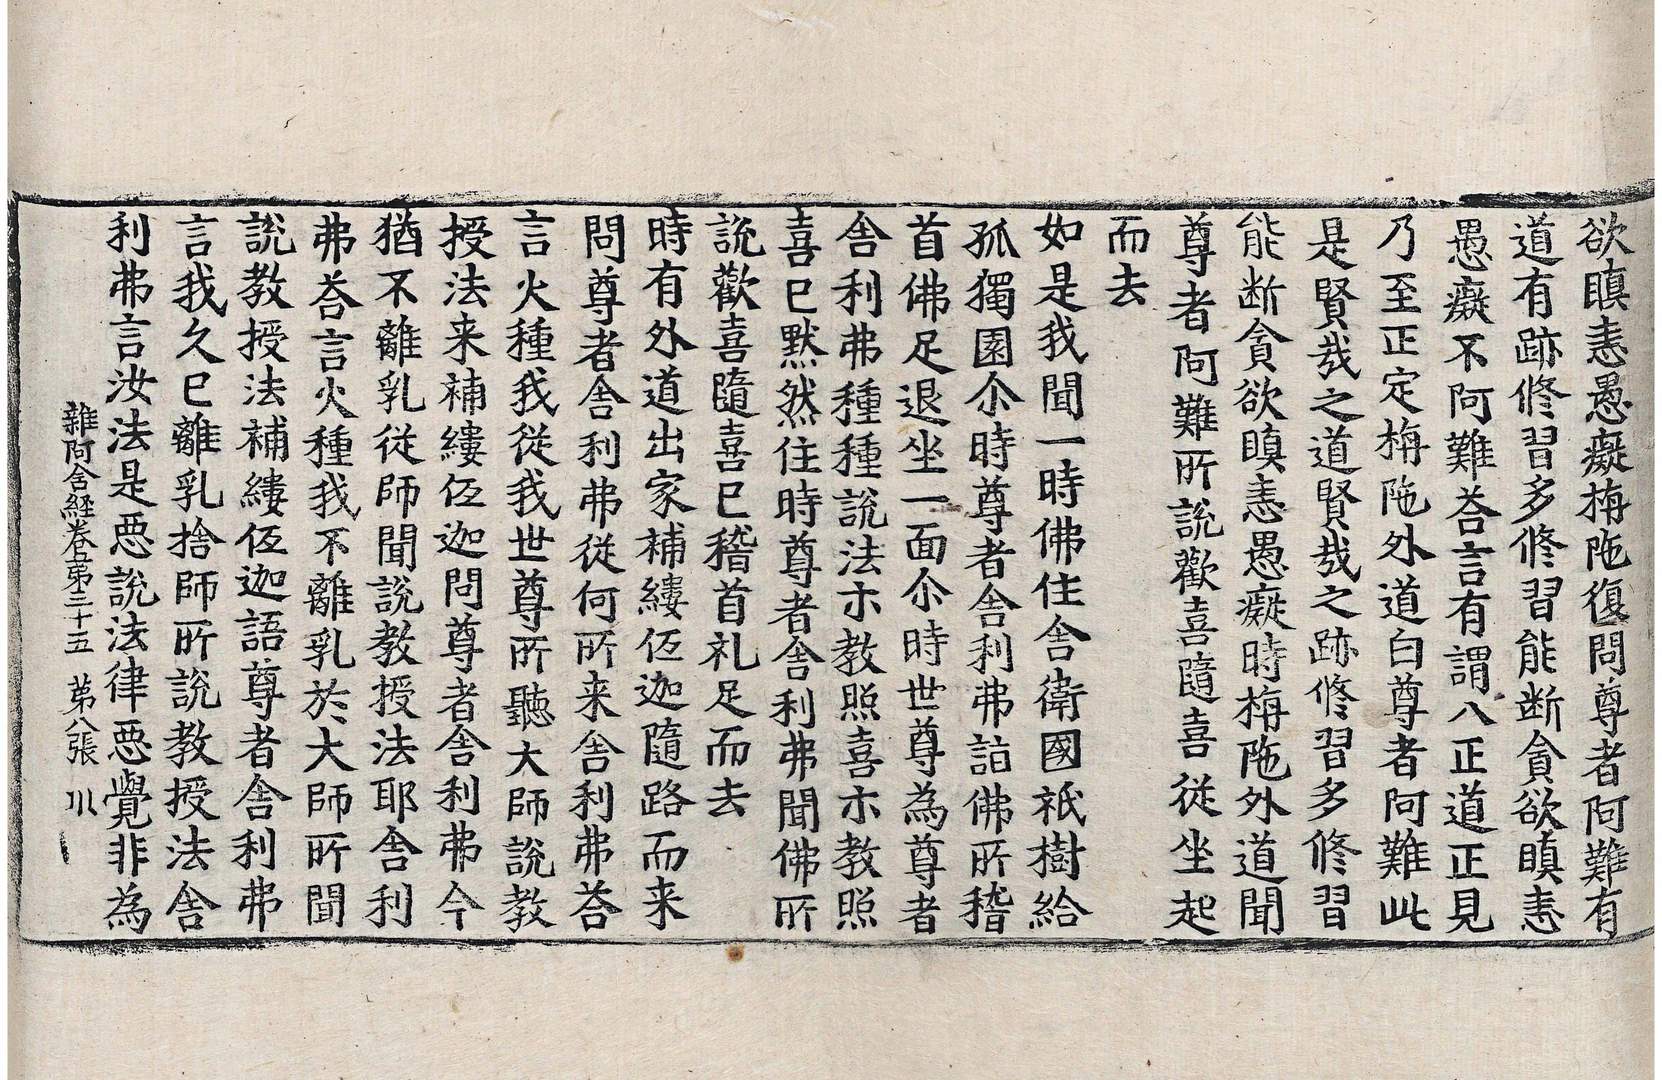 欲瞋恚愚癡栴陁復問尊者阿難有
道有跡修習多修習能断貪欲瞋恚
愚癡不阿難荅言有謂八正道正見
乃至正定栴陁外道白尊者阿難此
是賢㢤之道賢㢤之跡修習多修習
能断貪欲瞋恚愚癡時栴陁外道聞
尊者阿難所說歡喜隨喜從坐起
而去
如是我聞一時佛住舍衛國祇樹給
孤獨園尒時尊者舍利弗詣佛所稽
首佛足退坐一面尒時世尊為尊者
舍利弗種種說法示教照喜示教照
喜已默然住時尊者舍利弗聞佛所
說歡喜隨喜已稽首礼足而去
時有外道出家補縷低迦隨路而来
問尊者舍利弗從何所来舍利弗荅
言火種我從我世尊所聽大師說教
授法来補縷低迦問尊者舍利弗今
猶不離乳從師聞說教授法耶舍利
弗荅言火種我不離乳於大師所聞
說教授法補縷低迦語尊者舍利弗
言我久已離乳捨師所說教授法舍
利弗言汝法是惡說法律惡覺非為
雜阿含経卷第三十五 第八張 川